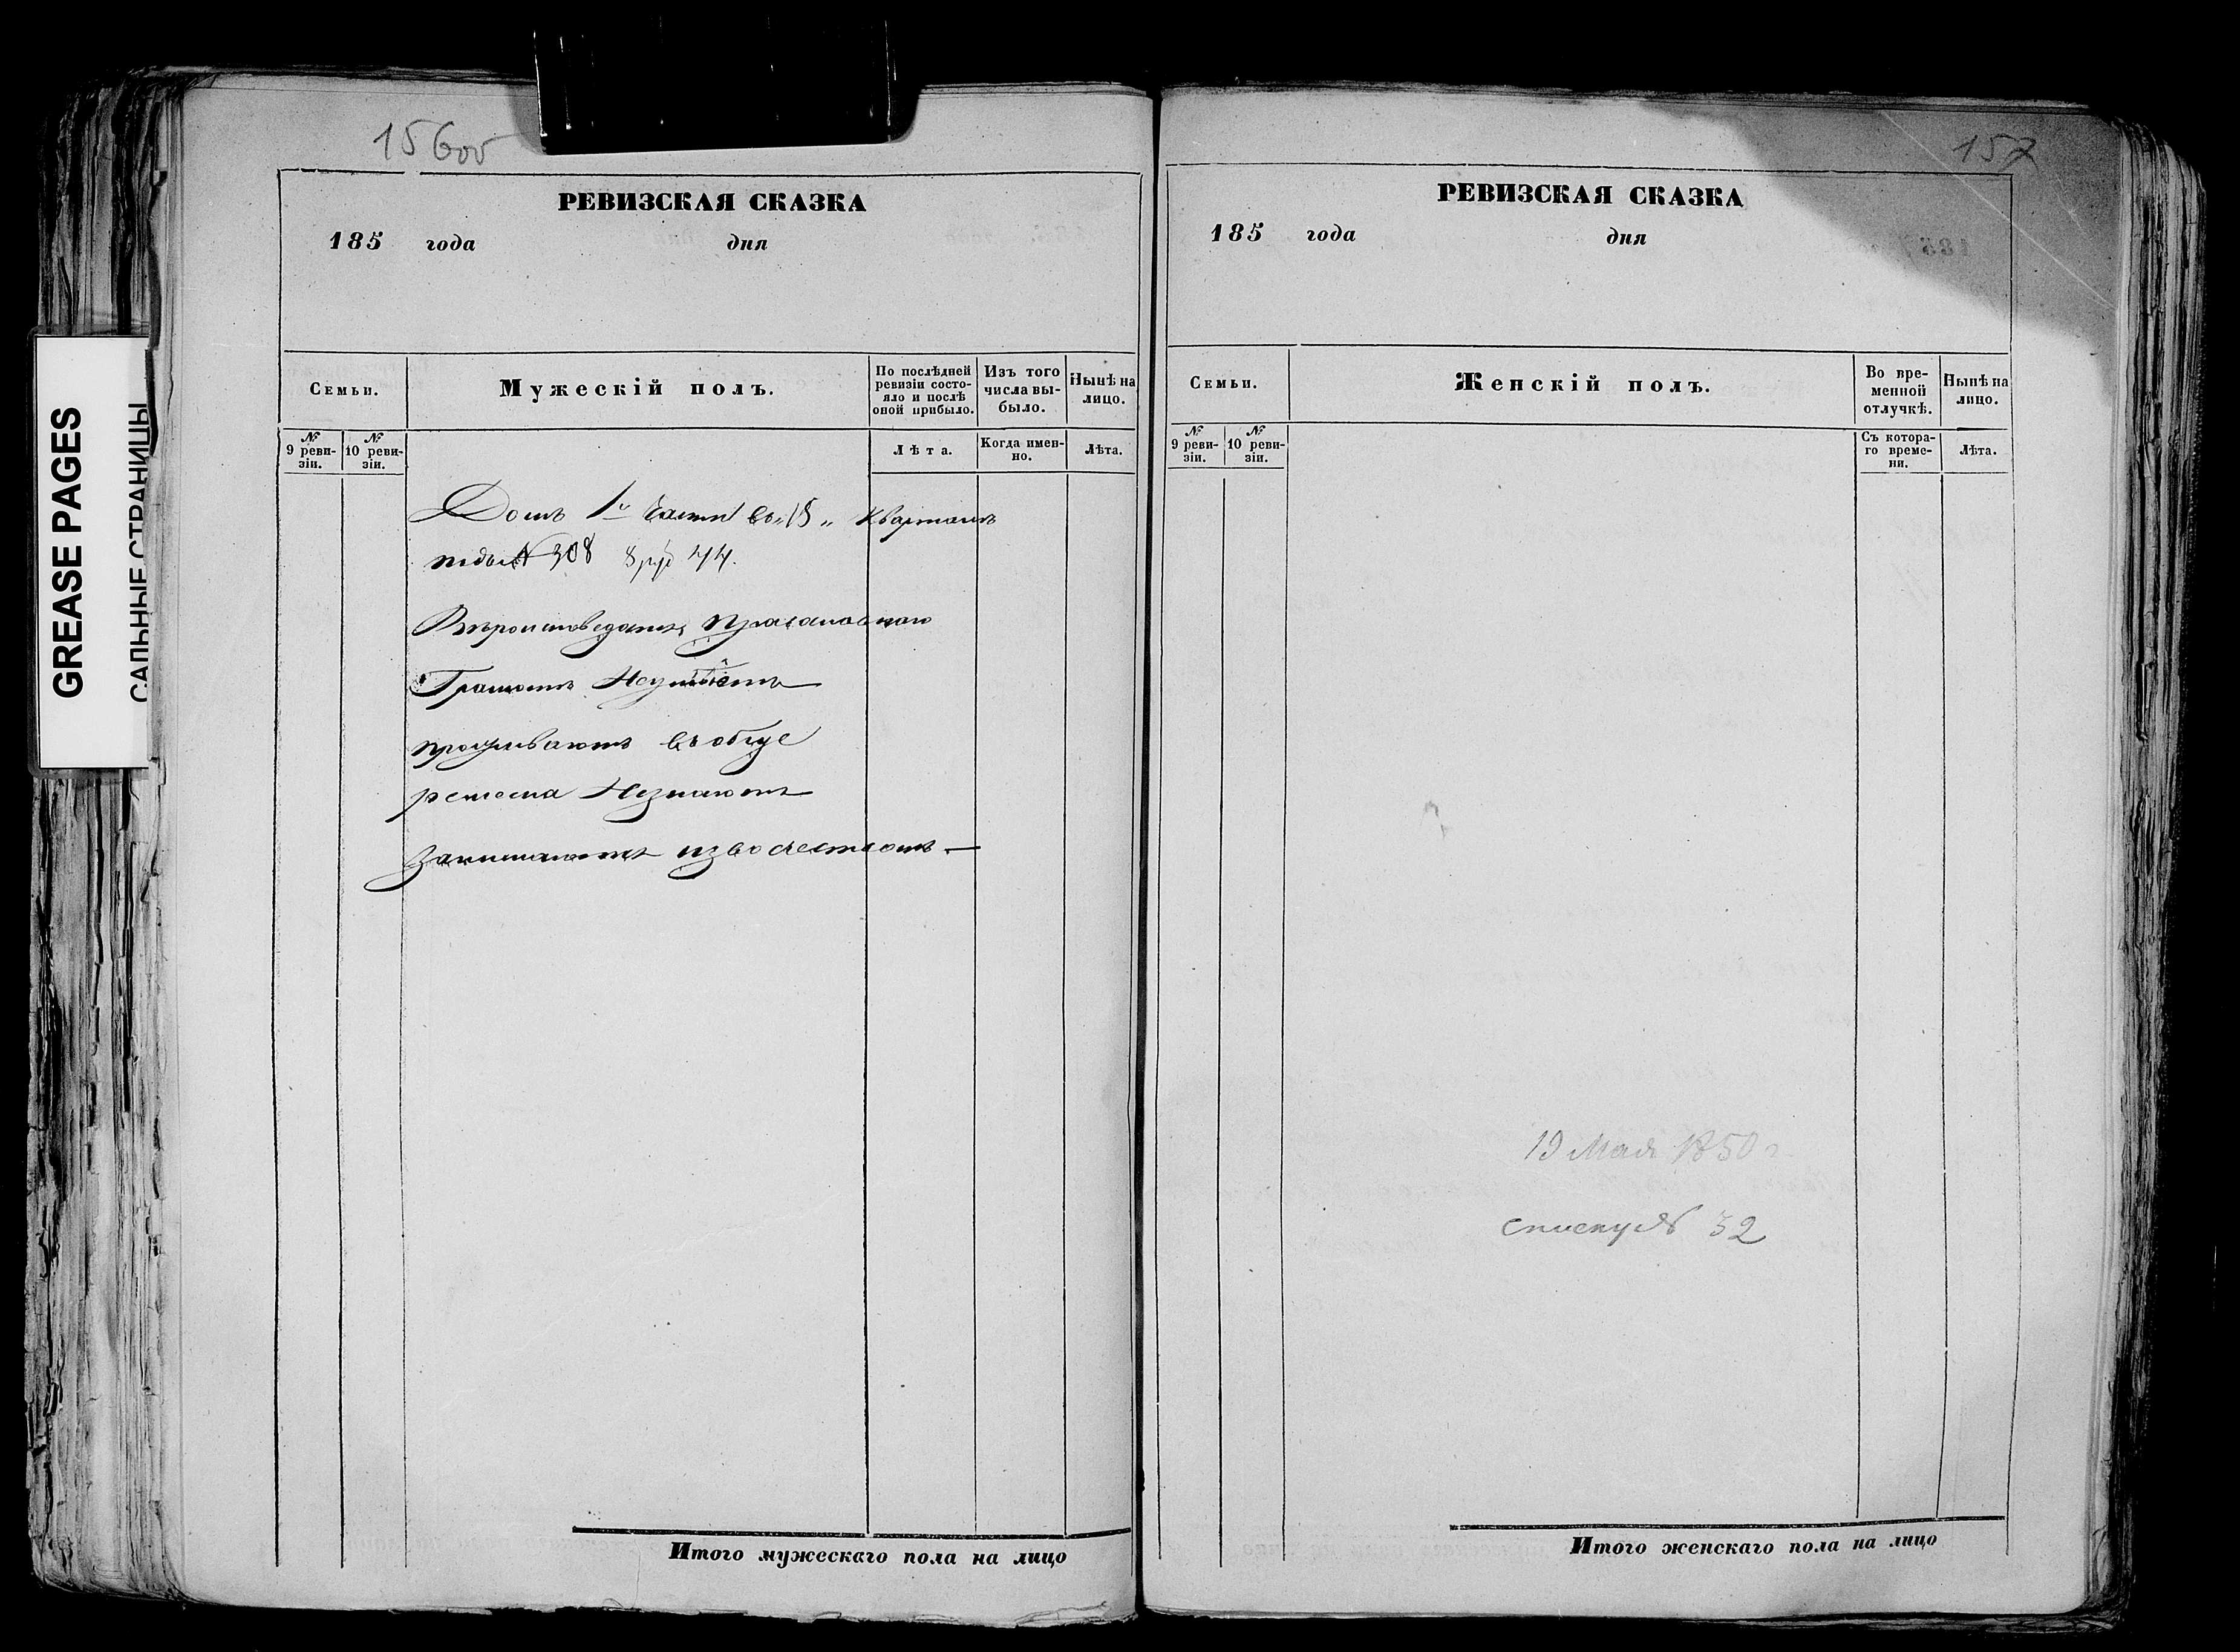 GREASE PAGES
САЛЬНЫЕ СТРАНИЦЫ
156об
РЕВИЗСКАЯ СКАЗКА
185 года дня
Семьи.
Мужескій полъ.
По послѣдней ревизіи состо-
яло и послѣ
оной прибыло.
Изъ того
числа вы-
было.
Нынѣ на
лицо.
№
9 реви-
зіи.
№
10 реви-
зіи.
Лѣта.
Когда имен-
но.
Лѣта.
Домъ 1й части въ „15„ кварталѣ
подъ № 308 8 р 44.
Вѣроисповеданія православнаго
Грамотѣ Неумѣютъ
проживаютъ въ обще
ремесла Незнаютъ
Занимаются извосчествомъ —
Итого мужескаго пола на лицо
157
РЕВИЗСКАЯ СКАЗКА
185 года дня
Семьи.
Женскій полъ.
Во вре-
менной
отлучкѣ.
Нынѣ на
лицо.
№
9 реви-
зіи.
№
10 реви-
зіи.
Съ котора-
го време-
ни.
Лѣта.
19 Мая 1850 г.
списку № 32
Итого женскаго пола на лицо